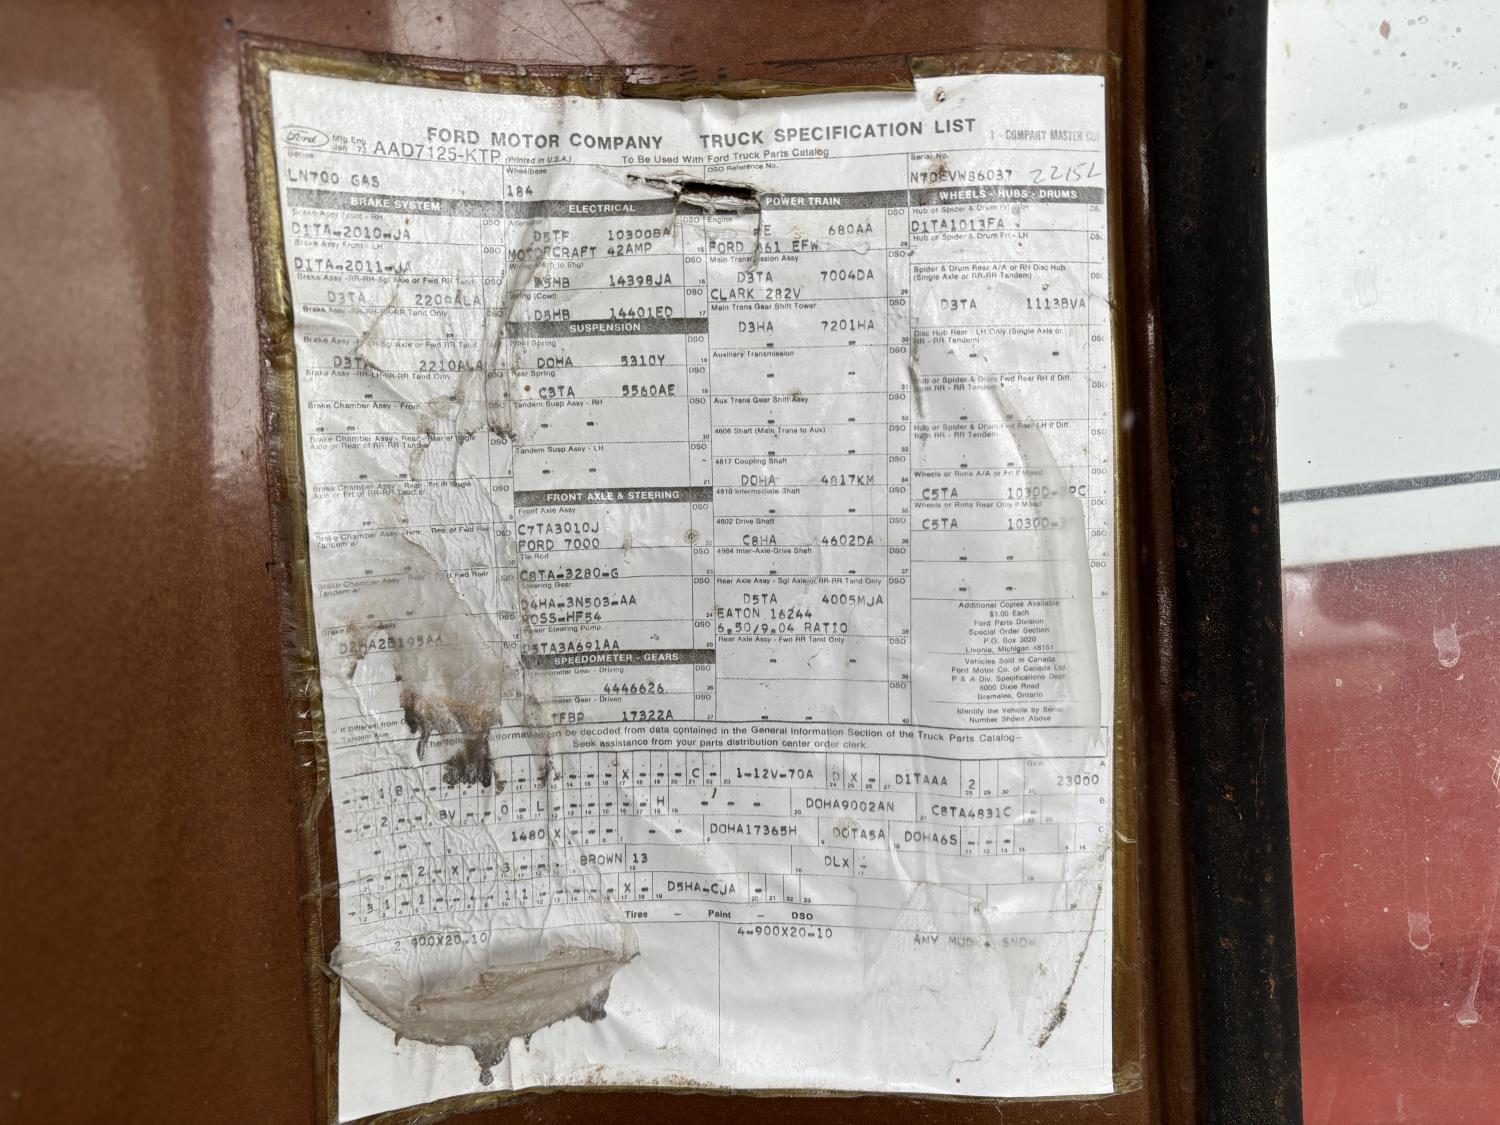 FORD MOTOR COMPANY TRUCK SPECIFICATION LIST
1 - COMPANY MASTER
Ford
Mfg Eng
Jan 73
AAD7125-KTP (Printed in U.S.A.)
To Be Used With Ford Truck Parts Catalog
Series
LN700 GAS
Wheelbase
184
DSO Reference No.
Serial No.
N70EVW86037 2215L
BRAKE SYSTEM
Brake Assy Front - RH
D1TA-2010-JA
Brake Assy Front - LH
D1TA-2011-JA
Brake Assy -RR-RH-Sgl Axle or Fwd RH Tand
D3TA 2209ALA
Brake Assy -RR-RH-RR-RR Tand Only
D3TA 2210ALA
Brake Assy -RR-LH-RR-RR Tand Only
Brake Chamber Assy - Front
Brake Chamber Assy - Rear - Rear of Single
Axle or Rear of RR-RR Tand
Brake Chamber Assy - Rear - Frt of Single
Axle or Frt of RR-RR Tand
D2HA2B195AA
ELECTRICAL
D5TF 10300BA
MOTORCRAFT 42AMP
D5HB 14398JA
Wiring (Cowl)
D5HB 14401ED
SUSPENSION
Front Spring
DOHA 5310Y
Rear Spring
C3TA 5560AE
Tandem Susp Assy - RH
Tandem Susp Assy - LH
FRONT AXLE & STEERING
Front Axle Assy
C7TA3010J
FORD 7000
Tie Rod
C8TA-3280-G
Steering Gear
D4HA-3N503-AA
ROSS-HF54
Power Steering Pump
D5TA3A691AA
SPEEDOMETER - GEARS
Speedometer Gear - Driving
4446626
Speedometer Gear - Driven
17322A
POWER TRAIN
Engine
E 680AA
FORD 361 EFW
Main Transmission Assy
D3TA 7004DA
CLARK 282V
Main Trans Gear Shift Tower
D3HA 7201HA
Auxiliary Transmission
Aux Trans Gear Shift Assy
4608 Shaft (Main Trans to Aux)
4817 Coupling Shaft
DOHA 4817KM
4810 Intermediate Shaft
4602 Drive Shaft
C8HA 4602DA
4984 Inter-Axle-Drive Shaft
Rear Axle Assy - Sgl Axle or RR-RR Tand Only
D5TA 4005MJA
EATON 16244
6.50/9.04 RATIO
Rear Axle Assy - Fwd RR Tand Only
WHEELS - HUBS - DRUMS
Hub or Spider & Drum Frt - RH
D1TA1013FA
Hub or Spider & Drum Frt - LH
Spider & Drum Rear A/A or RH Disc Hub
(Single Axle or RR-RR Tandem)
D3TA 1113BVA
Disc Hub Rear - LH Only (Single Axle or
RR - RR Tandem)
Hub or Spider & Drum Fwd Rear RH if Diff.
from RR - RR Tandem
Hub or Spider & Drum Fwd Rear LH if Diff
from RR - RR Tandem
Wheels or Rims A/A or Frt if Mixed
C5TA 1030D-
Wheels or Rims Rear Only if Mixed
C5TA 1030D-
Additional Copies Available
$1.00 Each
Ford Parts Division
Special Order Section
P.O. Box 3020
Livonia, Michigan 48151
Vehicles Sold in Canada
Ford Motor Co. of Canada Ltd.
P & A Div. Specifications Dept
8000 Dixie Road
Bramalea, Ontario
Identify the Vehicle by Serial
Number Shown Above
The following information can be decoded from data contained in the General Information Section of the Truck Parts Catalog-
Seek assistance from your parts distribution center order clerk.
- - 1 8 - X - - - C - 1-12V-70A D X - D1TAAA 2 GVW 23000
- - 2 - - BV - - O - L - H - - - DOHA9002AN C8TA4831C
1480 X - - DOHA17365H DOTA5A DOHA6S - - -
- - - 2 - X - - 3 - - BROWN 13 DLX -
- 3 1 - 1 - - 11 - - X - D5HA-CJA -
Tires - Paint - DSO
2 900X20-10 4-900X20-10 ANY MUD & SNOW